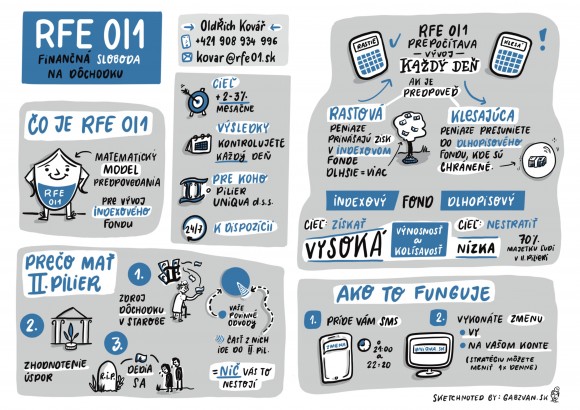 RFE 011
FINANČNÁ SLOBODA
NA DÔCHODKU
Oldřich Kovář
+421 908 934 996
kovar@rfe01.sk
ČO JE RFE 011
RFE
011
MATEMATICKÝ
MODEL
PREDPOVEDANIA
PRE VÝVOJ
INDEXOVÉHO
FONDU
CIEĽ
+ 2-3%
MESAČNE
VÝSLEDKY
KONTROLUJETE
KAŽDÝ DEŇ
PRE KOHO
II.
PILIER
UNIQA d.s.s.
24/7
K DISPOZÍCII
RFE 011
PREPOČÍTAVA
VÝVOJ
KAŽDÝ DEŇ
RASTIE
KLESÁ
!
AK JE
PREDPOVEĎ
RASTOVÁ
PENIAZE
PRINÁŠAJÚ ZISK
V INDEXOVOM
FONDE
DLHŠIE = VIAC
KLESAJÚCA
PENIAZE PRESUNIETE
DO DLHOPISOVÉHO
FONDU, KDE SÚ
CHRÁNENÉ.
INDEXOVÝ FOND DLHOPISOVÝ
CIEĽ: ZÍSKAŤ
VYSOKÁ
VÝNOSNOSŤ
a
KOLÍSAVOSŤ
CIEĽ: NESTRATIŤ
NÍZKA
70%
MAJETKU ĽUDÍ
V II. PILIERI
PREČO MAŤ
II. PILIER
1.
II
ZDROJ
DÔCHODKU
V STAROBE
2.
ZHODNOTENIE
ÚSPOR
3.
R.I.P.
DEDIA
SA
VAŠE
POVINNÉ
ODVODY
ČASŤ Z NICH
IDE DO II PIL.
= NIČ VÁS TO
NESTOJÍ
AKO TO FUNGUJE
1. PRÍDE VÁM SMS
ZMENA
O
21:00
22:20
2. VYKONÁTE ZMENU
VY
NA VAŠOM KONTE
(STRATÉGIU MÔŽETE
MENIŤ 1x DENNE)
SKETCHNOTED BY: GABZVAN.SK